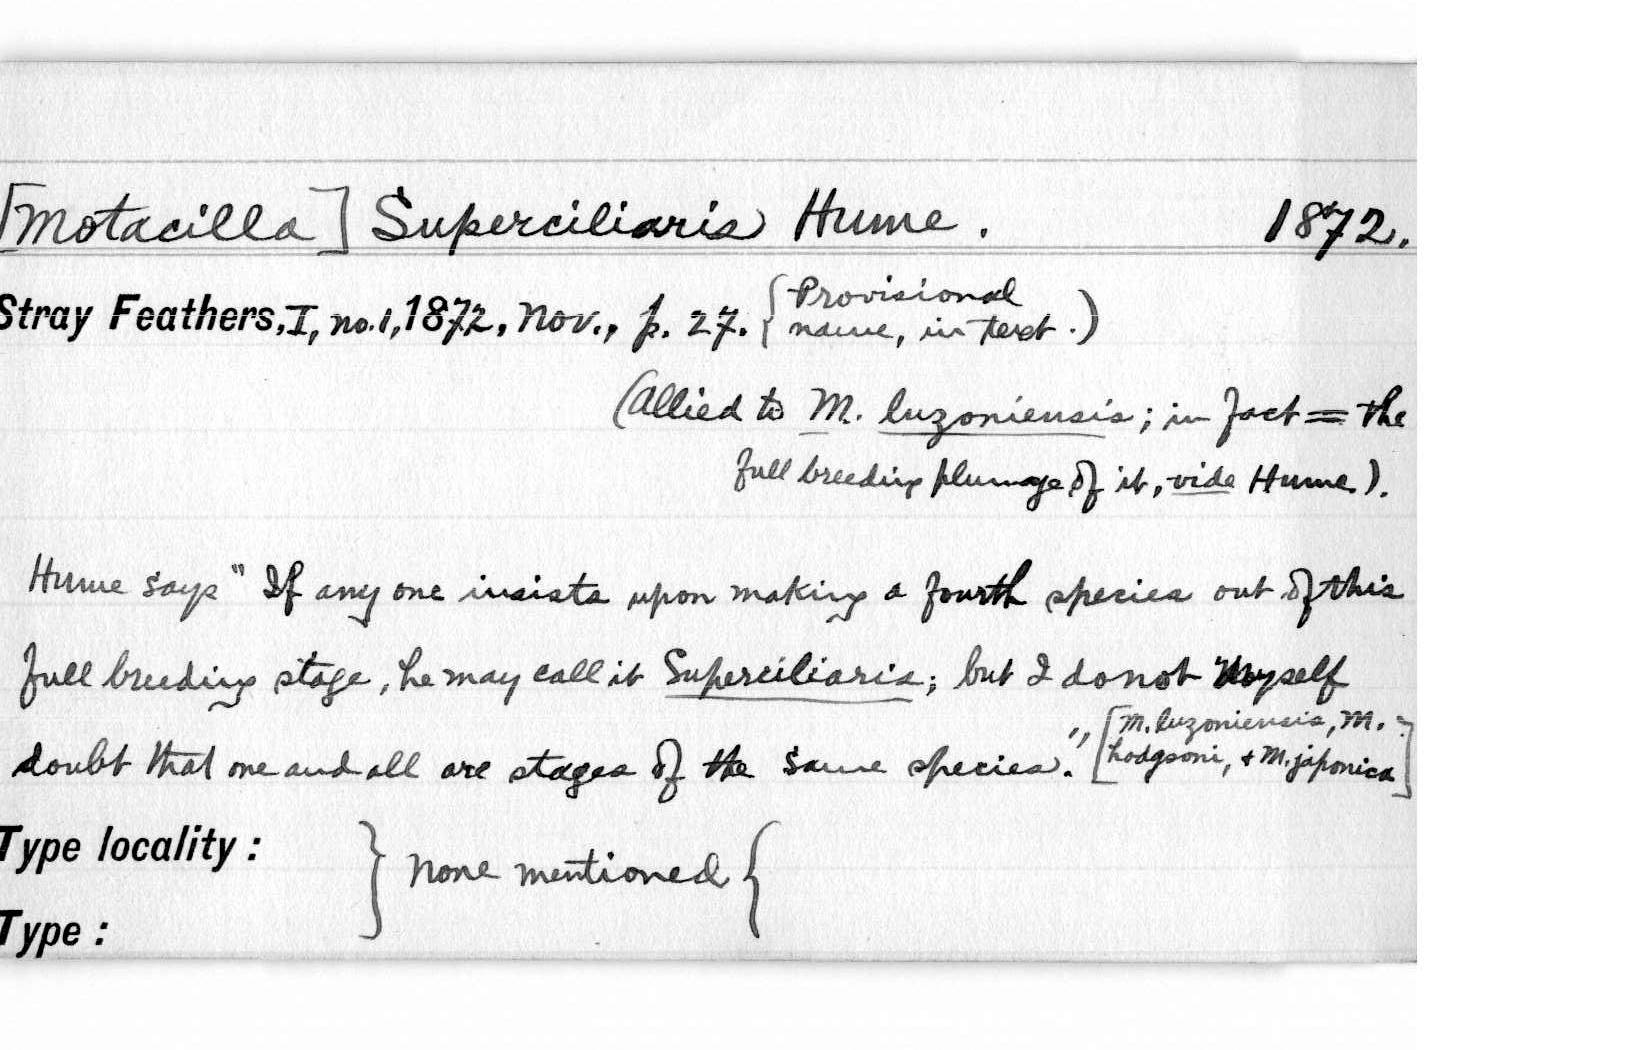 [Motacilla] Superciliaris Hume. 1872.
Stray Feathers, I, no.1, 1872, Nov., p. 27. {Provisional
name, in text.)
(Allied to M. luzoniensis; in fact = the
full breeding plumage of it, vide Hume.).
Hume says "If any one insists upon making a fourth species out of this
full breeding stage, he may call it Superciliaris; but I do not myself
doubt that one and all are stages of the same species." [M. luzoniensis, M.
hodgsoni, + M. japonica]
Type locality: } None mentioned {
Type: